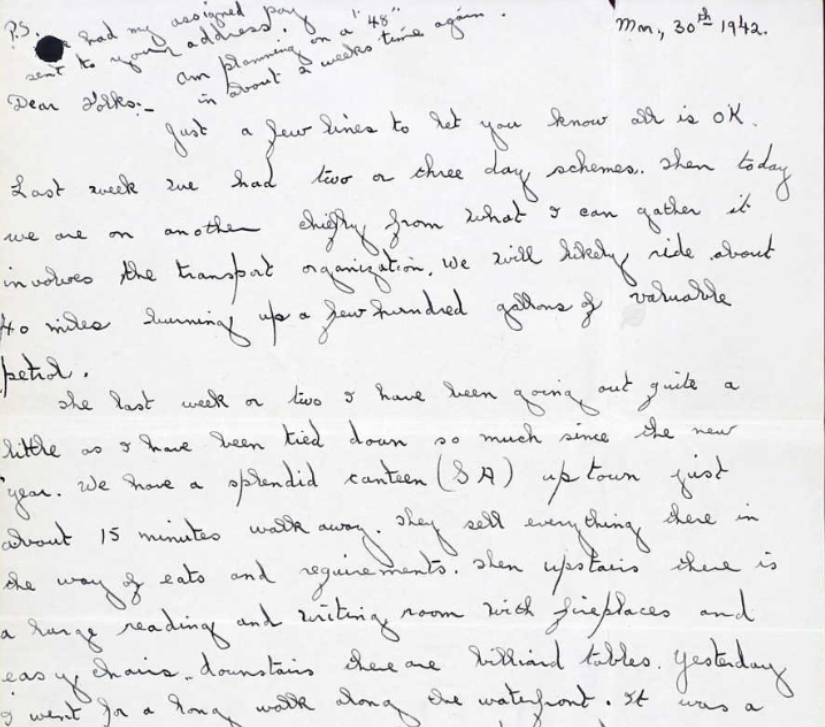 P.S. had my assigned pay
sent to your address.
am planning on a "48"
in about 2 weeks time again.
Mar, 30th 1942.
Dear Folks:-
Just a few lines to let you know all is OK.
Last week we had two or three day schemes.. Then today
we are on another chiefly from what I can gather it
involves the transport organization. We will likely ride about
40 miles burning up a few hundred gallons of valuable
petrol.
The last week or two I have been going out quite a
little as I have been tied down so much since the new
year. We have a splendid canteen (S A) up town just
about 15 minutes walk away. They sell everything there in
the way of eats and requirements. Then upstairs there is
a large reading and writing room with fireplaces and
easy chairs.. downstairs there are billiard tables. Yesterday
I went for a long walk along the waterfront. It was a